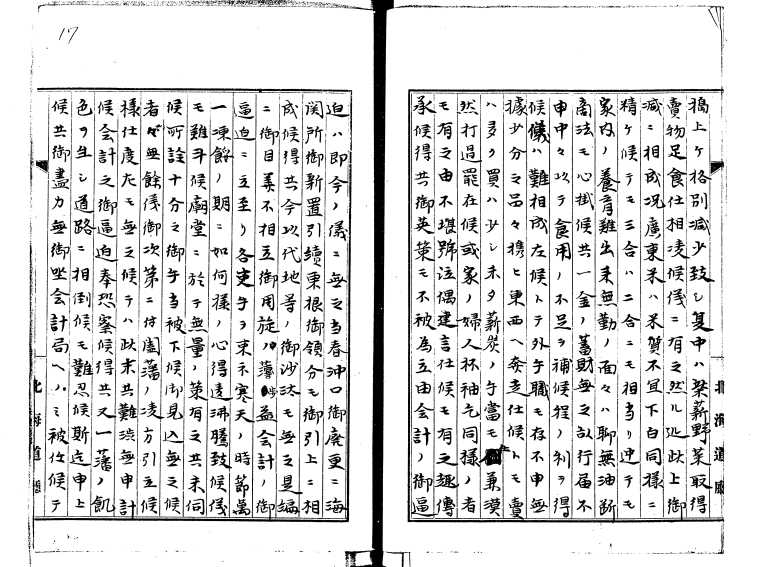 稿上ケ格別減少致シ夏中ハ柴薪野菜取得
賣物足食仕相凌候儀ニ有之然ル処此上御
減ニ相成況廣東米ハ米質不宜下白同様ニ
精ケ候テモ三合ハ二合ニモ相当リ迚テモ
家内ノ養育難出来無勤ノ面々ハ聊無油断
商法モ心掛候共一金ノ蓄財無之故行届不
申中々以テ食用ノ不足ヲ補候程ノ利ヲ得
候儀ハ難相成左候トテ外ニ手職モ存不申無
據少分之品々携ヒ東西ヘ奔走仕候トモ賣
ハ多ク買ハ少シ未タ薪炭ノ手當モ無兼漠
然打過罷在候或家ノ婦人杯袖乞同様ノ者
モ有之由不堪號泣偶建言仕候モ有之趣傳
承候得共御英策モ不被為立由会計ノ御逼
迫ハ即今ノ儀ニ無之当春沖口御廃里ニ海
関所御新置引續東根御領分モ御引上ニ相
成候得共今以代地等ノ御沙汰モ無之是編
ニ御目算不相立御用旋ノ薄益会計ノ御
逼迫ニ立至リ各更手ヲ束ネ寒天ノ時節萬
一凍餒ノ期ニ如何様ノ心得違沸騰致候儀
モ難斗候廟堂ニ於テ無量ノ策有之共未伺
候所詮十分之御手当被下候御見込無之候
者ハ無餘儀御次第ニ付盧藩ノ凌方引立候
様仕度左モ無之候テハ此末共難渋無申計
候会計之御逼迫奉恐察候得共又一藩ノ飢
色ヲ生シ道路ニ相倒候モ難忍候斯迄申上
候共御盡力無御坐会計局ヘノミ被任候テ
北海道廳
北海道廳
17